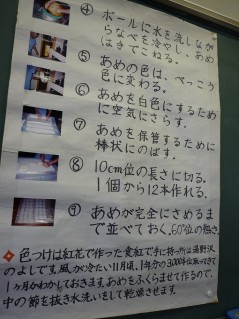 ④ ボールに水を流しなが
らなべを冷やし、あめ
はきでこねる。
⑤ あめの色は、べっこう
色に変わる。
⑥ あめを白色にするため
に空気にさらす。
⑦ あめを保管するために
棒状にのばす。
⑧ 10cm位の長さに切る。
1個から12本作れる。
⑨ あめが完全にさめるま
で並べておく。60°位の熱さ。
色つけは紅花で作った黄紅で手に持つ所は湯野沢
のよしです。風が冷たい11月頃、1年分の3,000本位取ってきて
1ヶ月かわかしておきます。あめをふくらませて作るので、
中の節を抜き水洗いをして乾燥させます。